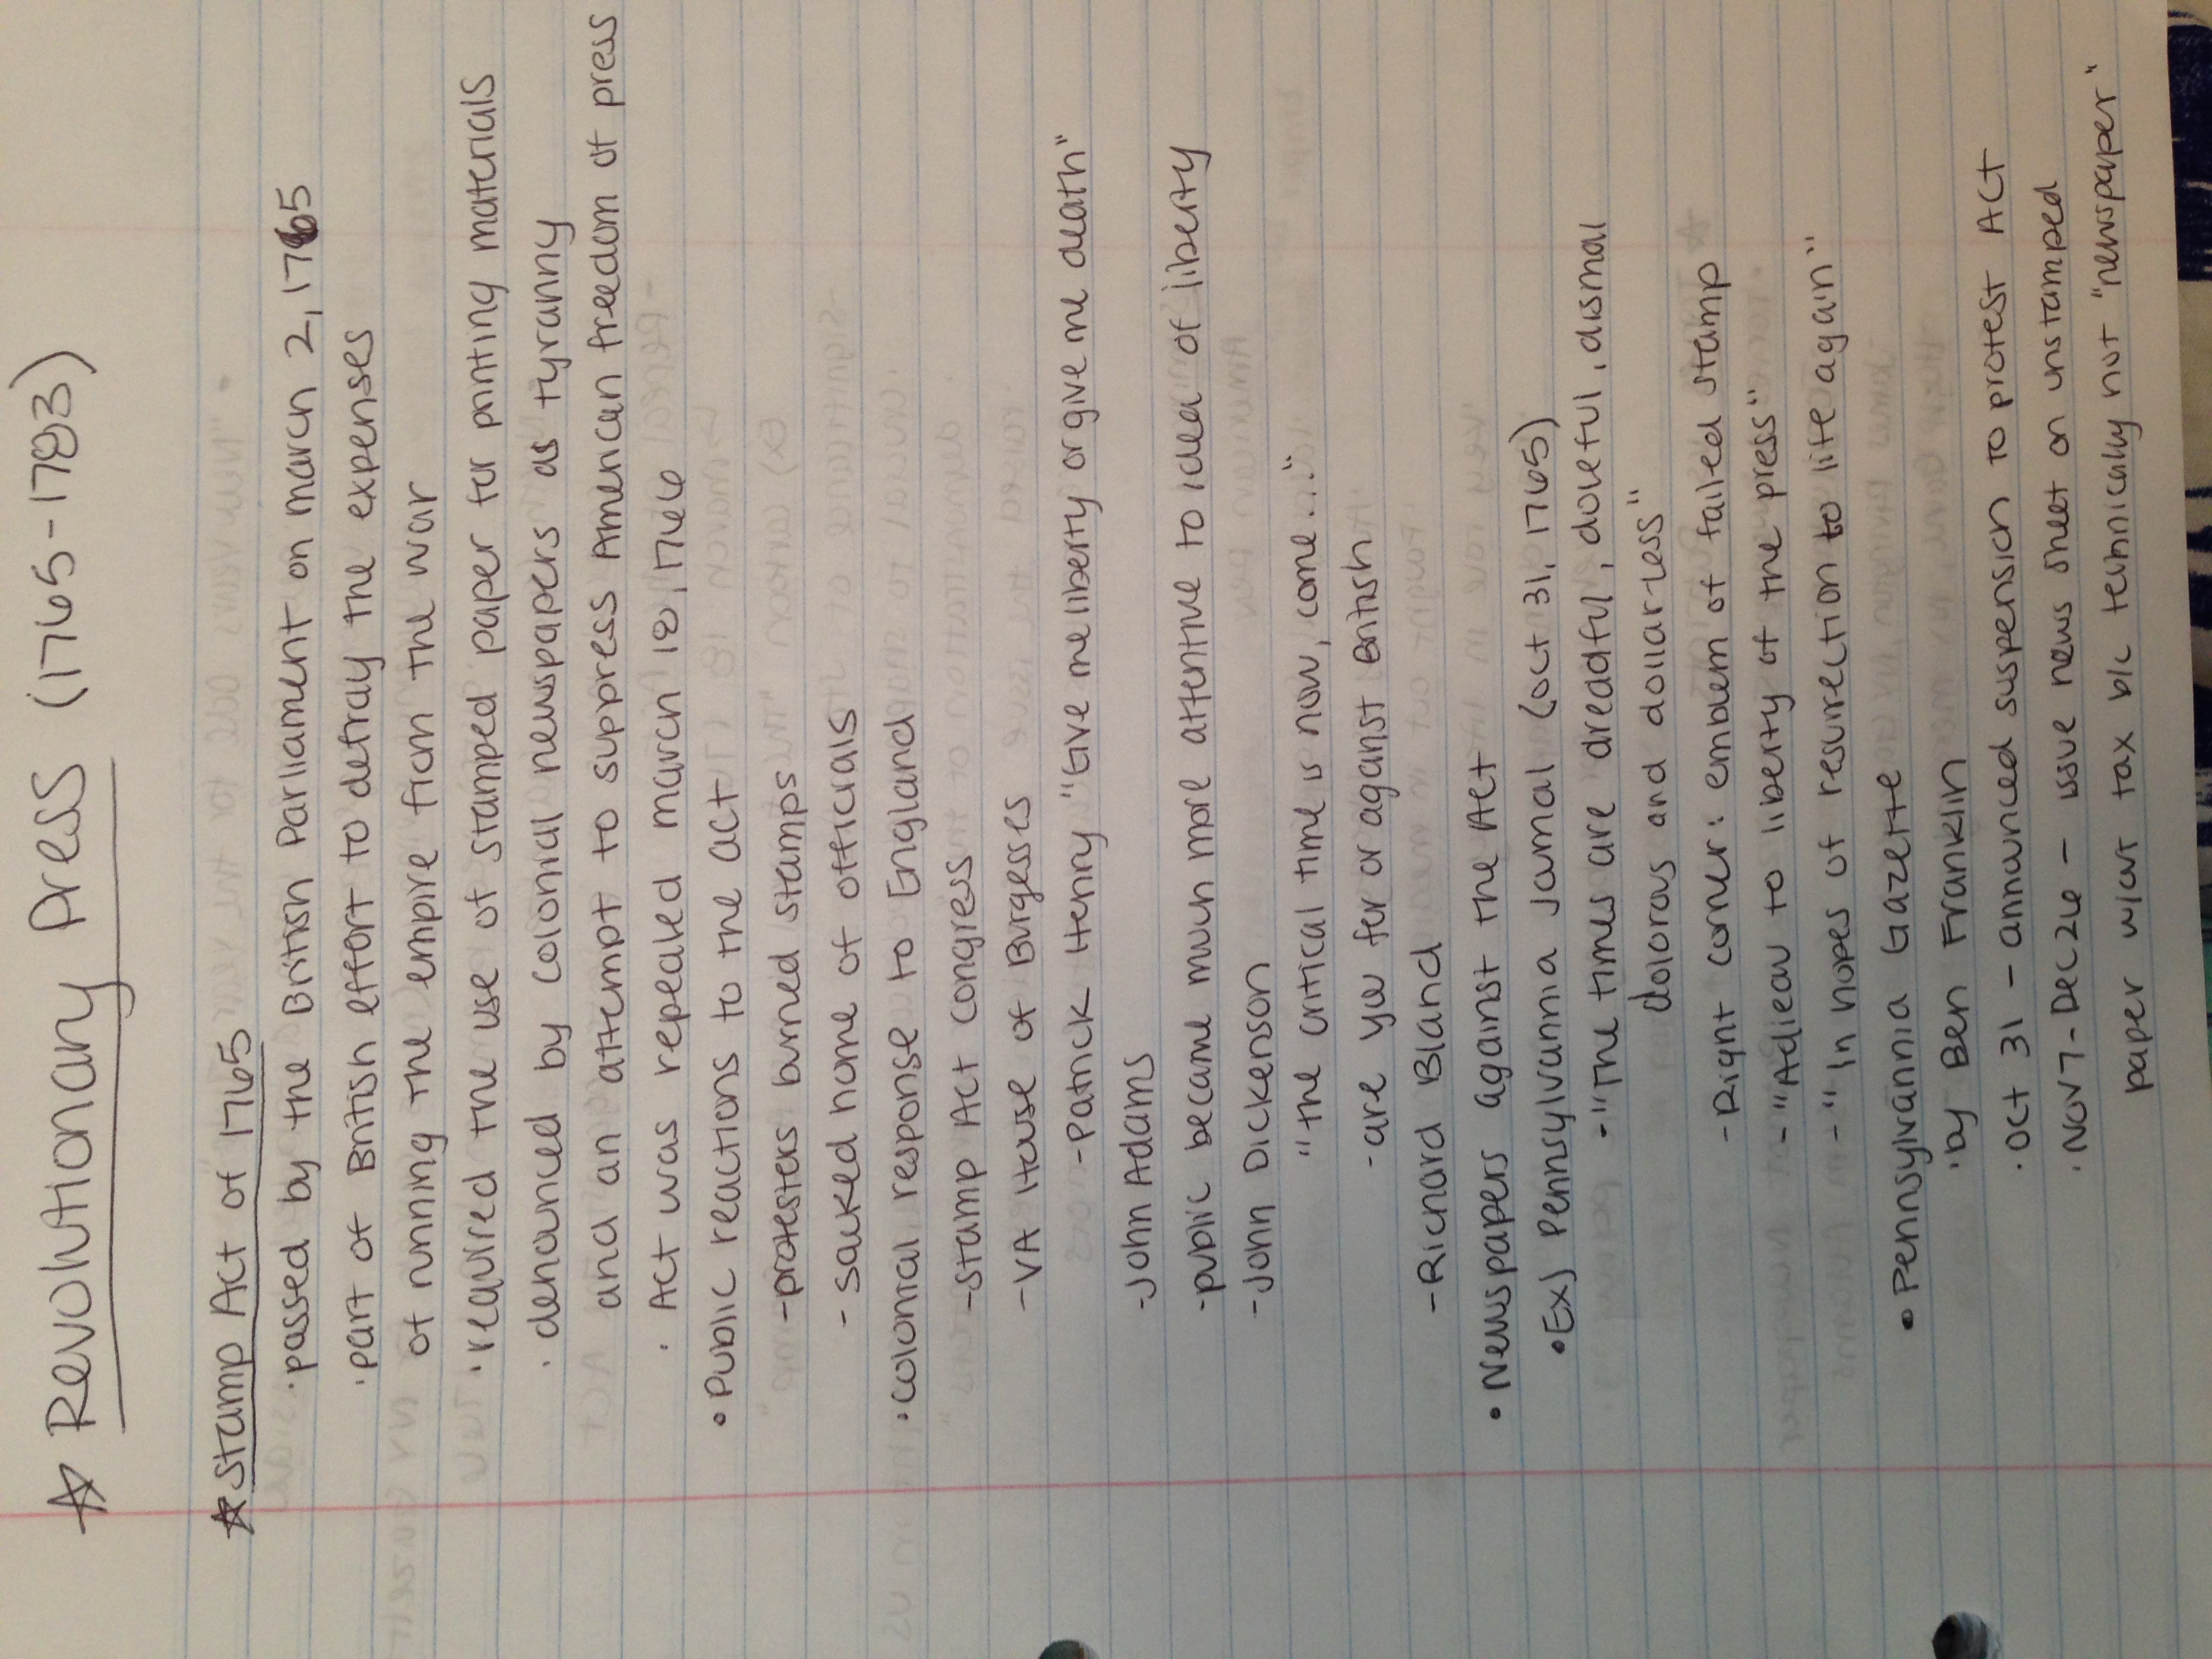 ☆ Revolutionary Press (1765-1783)
☆ Stamp Act of 1765
· passed by the British Parliament on march 2, 1765
· part of British effort to defray the expenses
of running the empire from the war
· required the use of stamped paper for printing materials
· denounced by colonial newspapers as tyranny
and an attempt to suppress American freedom of press
· Act was repealed march 18, 1766
• Public reactions to the act
- protesters burned stamps
- sacked home of officials
• colonial response to England
- Stamp Act congress
- VA House of Burgesses
- Patrick Henry "Give me liberty or give me death"
- John Adams
- public became much more attentive to idea of liberty
- John Dickenson
"the critical time is now, come..."
- are you for or against British
- Richard Bland
• Newspapers against the Act
• Ex) Pennsylvannia Journal (oct 31, 1765)
- "The times are dreadful, doleful, dismal
dolorous and dollar-less"
- Right corner: emblem of failed stamp
- "Adieau to liberty of the press"
- "In hopes of resurrection to life again"
• Pennsylvannia Gazette
· by Ben Franklin
· Oct 31 - announced suspension to protest Act
· Nov 7 - Dec 26 - issue news sheet on unstamped
paper w/out tax b/c technically not "newspaper"